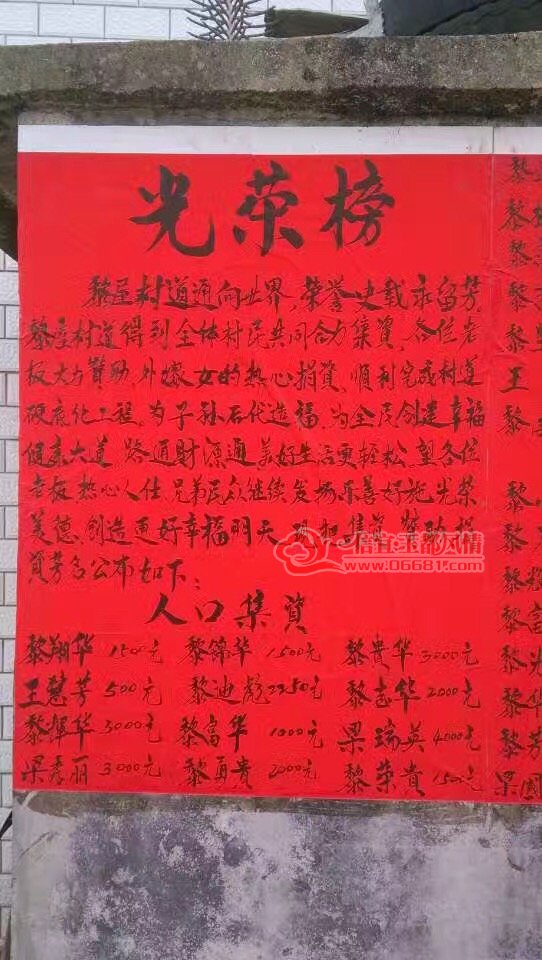 光荣榜
黎垦村道通向世界，荣誉史载永留芳，
黎垦村道得到全体村民共同合力集资，各位老
板大力赞助，外嫁女的热心捐资，顺利完成村道
硬底化工程。为子孙后代造福，为全民创建幸福
健康大道，路通财源通，美好生活更轻松，望各位
老板，热心人仕，兄弟民众继续发扬乐善好施光荣
美德，创造更好幸福明天，现把集资、赞助、捐
資芳名公布如下：
人口集資
黎翔华 1500元 黎锦华 1500元 黎贵华 3000元
王慧芳 500元 黎迪彪 2250元 黎志华 2000元
黎辉华 3000元 黎富华 1000元 梁瑞英 4000元
梁秀丽 3000元 黎勇貴 2000元 黎荣貴 1500元
黎
黎
黎
黎
黎
王
黎
黎
黎
黎
黎富
黎光
黎华
黎芳
梁國
信宜玉都风情
www.06681.com